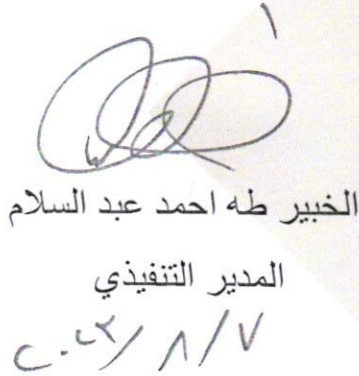 الخبير طه احمد عبد السلام
المدير التنفيذي
٢٠٢٣/٨/٧